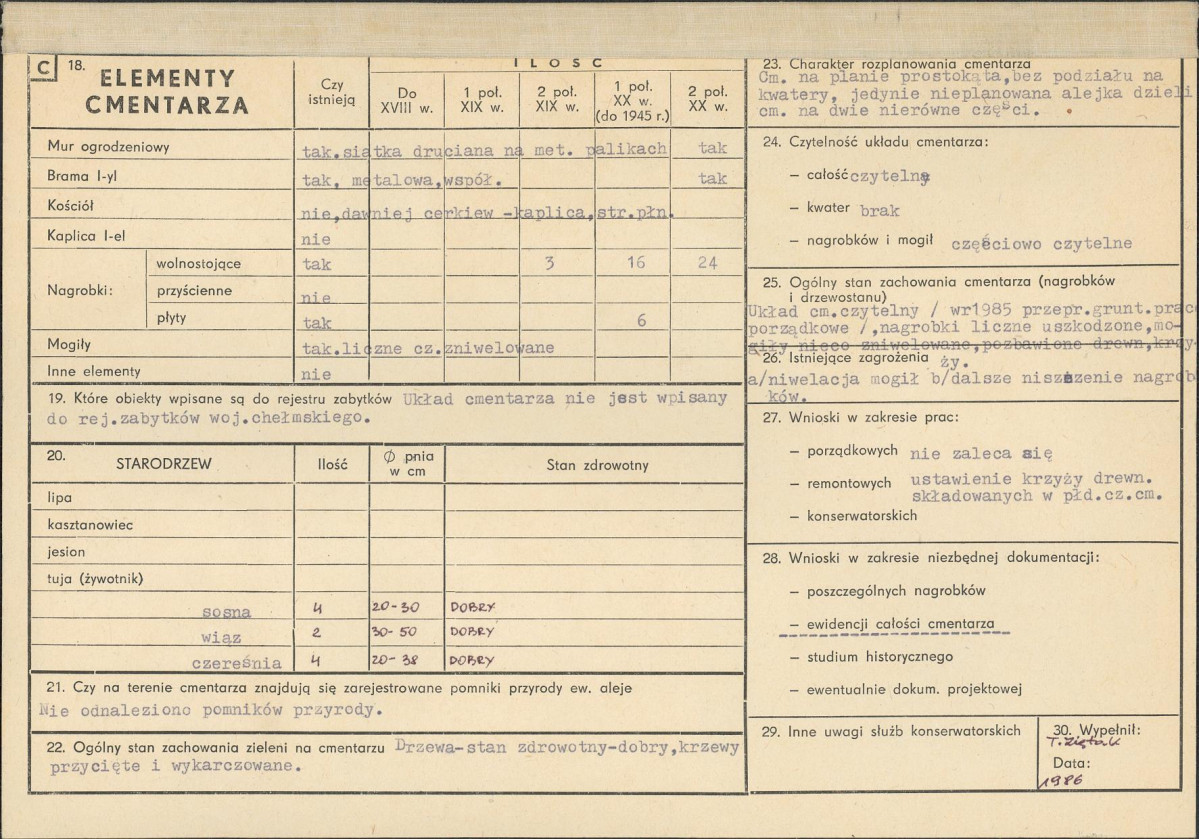 C 18. ELEMENTY CMENTARZA
Czy istnieją
ILOŚC
Do XVIII w.
1 poł. XIX w.
2 poł. XIX w.
1 poł. XX w. (do 1945 r.)
2 poł. XX w.
Mur ogrodzeniowy tak.siatka druciana na met. palikach tak
Brama I-yl tak, metalowa,współ. tak
Kościół nie,dawniej cerkiew -kaplica,str.płn.
Kaplica I-el nie
Nagrobki: wolnostojące tak 3 16 24
przyścienne nie
płyty tak 6
Mogiły tak.liczne cz.zniwelowane
Inne elementy nie
19. Które obiekty wpisane są do rejestru zabytków Układ cmentarza nie jest wpisany
do rej.zabytków woj.chełmskiego.
20. STARODRZEW Ilość Ø pnia w cm Stan zdrowotny
lipa
kasztanowiec
jesion
tuja (żywotnik)
sosna 4 20-30 DOBRY
wiąz 2 30-50 DOBRY
czereśnia 4 20-38 DOBRY
21. Czy na terenie cmentarza znajdują się zarejestrowane pomniki przyrody ew. aleje
Nie odnaleziono pomników przyrody.
22. Ogólny stan zachowania zieleni na cmentarzu Drzewa-stan zdrowotny-dobry,krzewy
przycięte i wykarczowane.
23. Charakter rozplanowania cmentarza
Cm. na planie prostokąta,bez podziału na
kwatery, jedynie nieplanowana alejka dzieli
cm. na dwie nierówne części.
24. Czytelność układu cmentarza:
– całość czytelny
– kwater brak
– nagrobków i mogił częściowo czytelne
25. Ogólny stan zachowania cmentarza (nagrobków
i drzewostanu)
Układ cm.czytelny / wr1985 przepr.grunt.prace
porządkowe /,nagrobki liczne uszkodzone,mo-
giły nieco zniwelowane,pozbawione drewn,krzy-
ży.
26. Istniejące zagrożenia
a/niwelacja mogił b/dalsze niszczenie nagrob
ków.
27. Wnioski w zakresie prac:
– porządkowych nie zaleca się
– remontowych ustawienie krzyży drewn.
składowanych w płd.cz.cm.
– konserwatorskich
28. Wnioski w zakresie niezbędnej dokumentacji:
– poszczególnych nagrobków
– ewidencji całości cmentarza
– studium historycznego
– ewentualnie dokum. projektowej
29. Inne uwagi służb konserwatorskich
30. Wypełnił:
Data:
1986